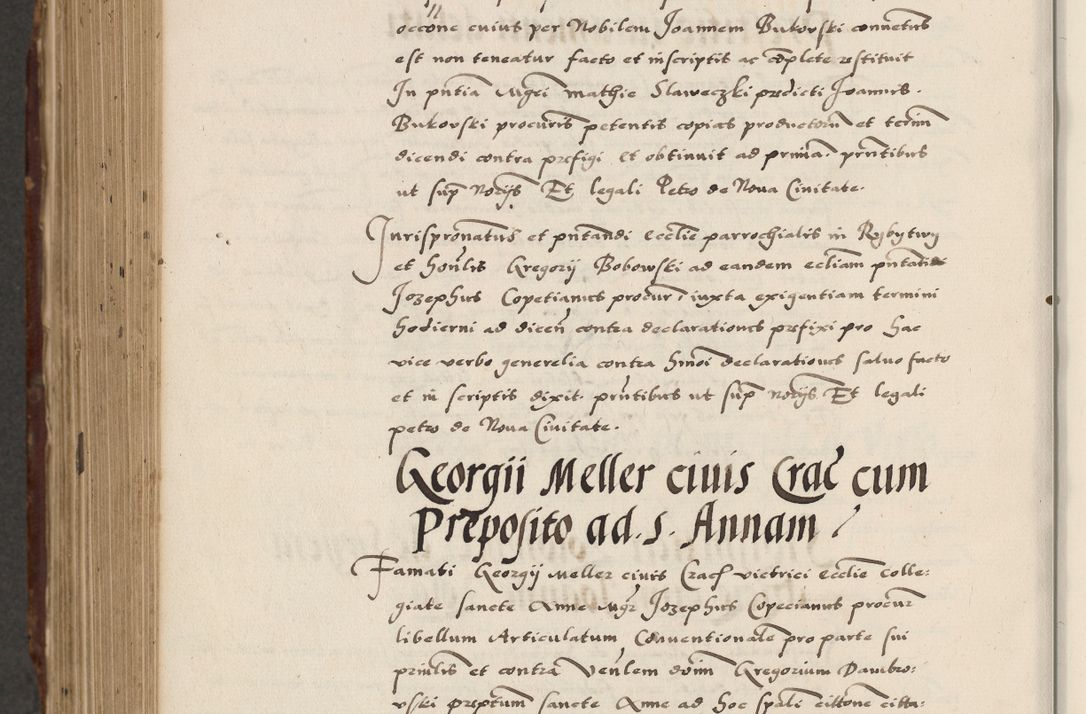 occõne cuius per Nobilem Joannem Bukovski conuetus
est non teneatur facto et inscriptis ac cõplete restituit
In pntia Mgci mathie Slaweczki predicti Joannis
Bukovski procuris petentis copias productorũ et termi
dicendi contra prefigi Et obtinuit ad prima. pntibus
ut sup Notijs Et legali Petro de Noua Ciuitate.
Jurispronatus et pntandi Ecclie parrochialis in Rybytwy
et honlis Gregorij Bobowski ad eandem eccliam pntati
Jozephus Copetianus procur, iuxta exigentiam termini
hodierni ad dicen contra declarationes prefixi pro hac
vice verbo generelia contra hmoi declarationes saluo facto
et in scriptis dixit. pntibus ut sup notijs Et legali
petro de Noua Ciuitate.
Georgii Meller ciuis Crac cum
Preposito ad. S. Annam
Famati Georgij Meller ciuis Crac victrici Ecclie Colle:
giate sancte Anne Mgr Jozephus Copecianus procur
libellum Articulatum Conuentionale pro parte sui
prinlis et contra Venlem dnm Gregorium Dambro:
vski preptum sancte Anne ad hoc spali cittone citta: